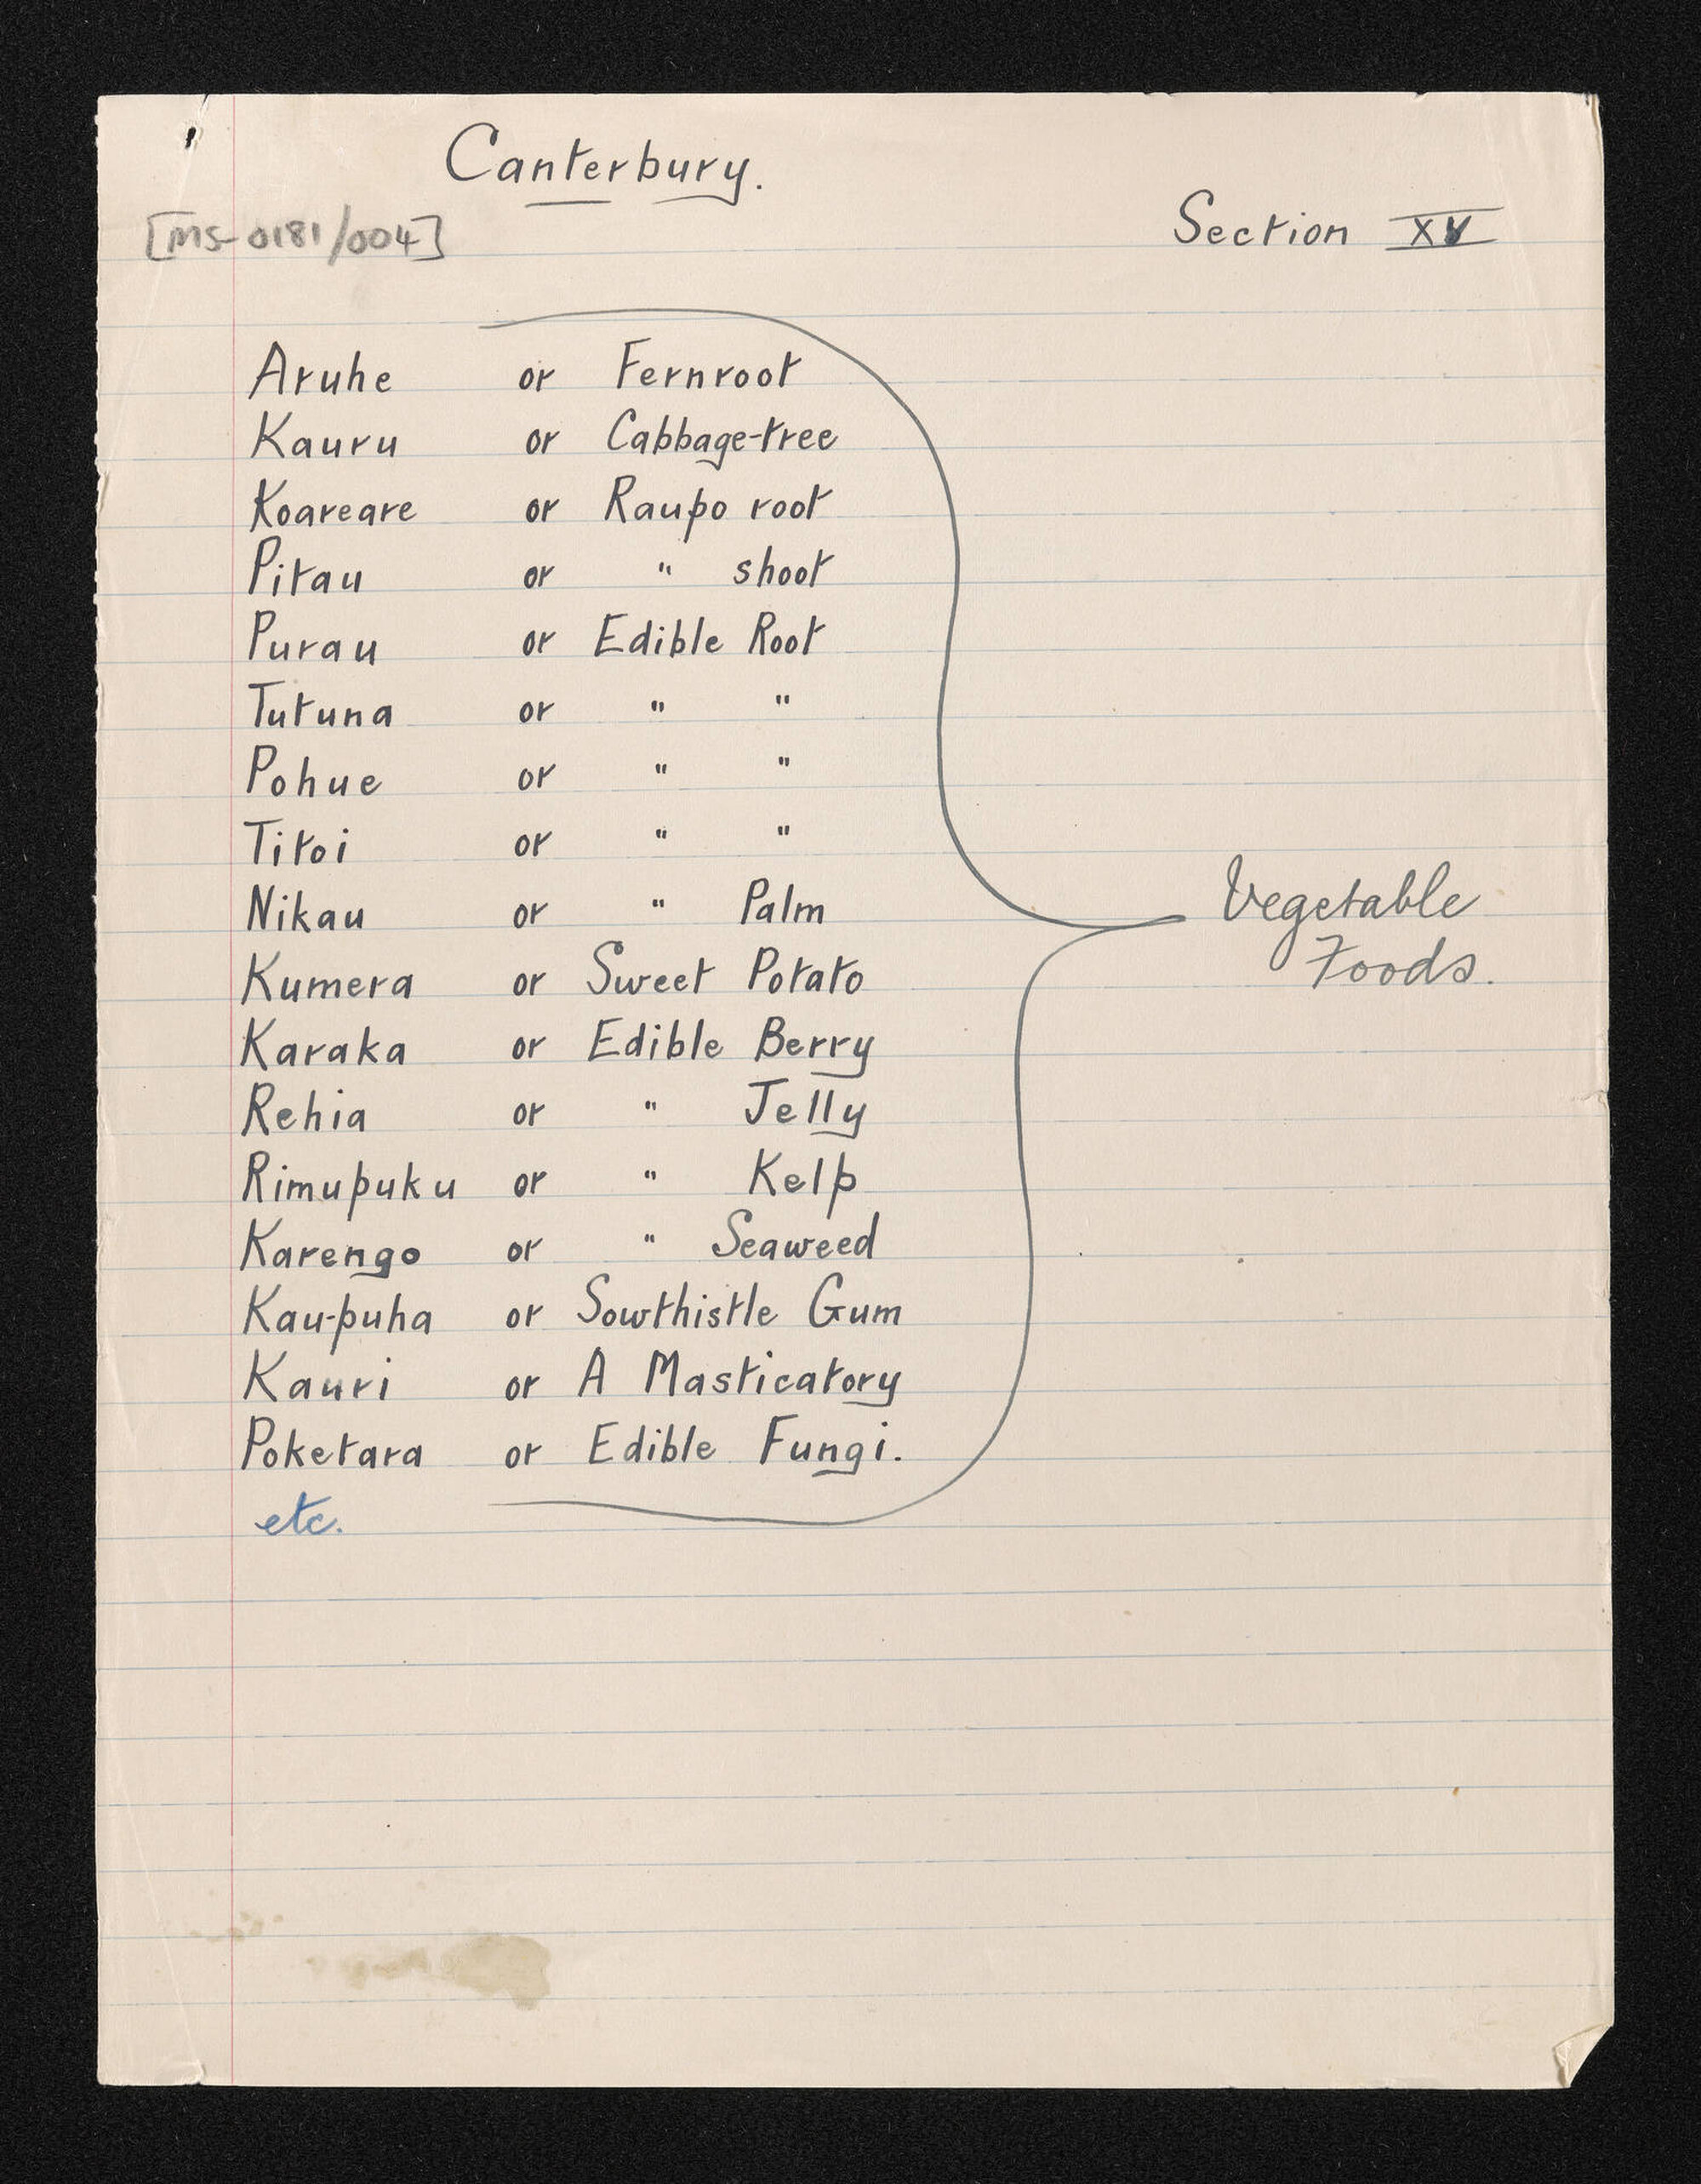 Canterbury.
[MS-0181/004]
Section XV
Aruhe or Fernroot
Kauru or Cabbage-tree
Koareare or Raupo root
Pitau or " shoot
Purau or Edible Root
Tutuna or " "
Pohue or " "
Titoi or " "
Nikau or " Palm
Kumera or Sweet Potato
Karaka or Edible Berry
Rehia or " Jelly
Rimupuku or " Kelp
Karengo or " Seaweed
Kau-puha or Sowthistle Gum
Kauri or A Masticatory
Poketara or Edible Fungi.
etc.
Vegetable
Foods.